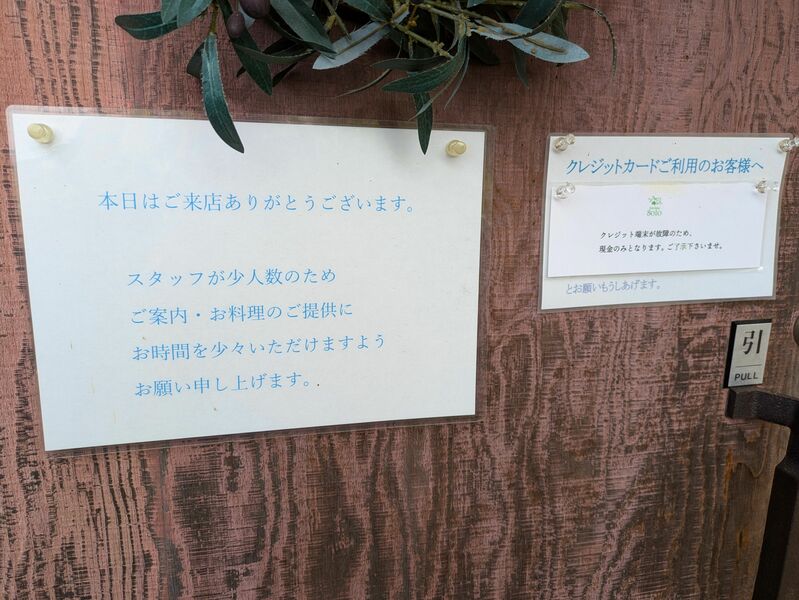 本日はご来店ありがとうございます。
スタッフが少人数のため
ご案内・お料理のご提供に
お時間を少々いただけますよう
お願い申し上げます。
クレジットカードご利用のお客様へ
solo
クレジット端末が故障のため、
現金のみとなります。ご了承下さいませ。
とお願いもうしあげます。
引
PULL